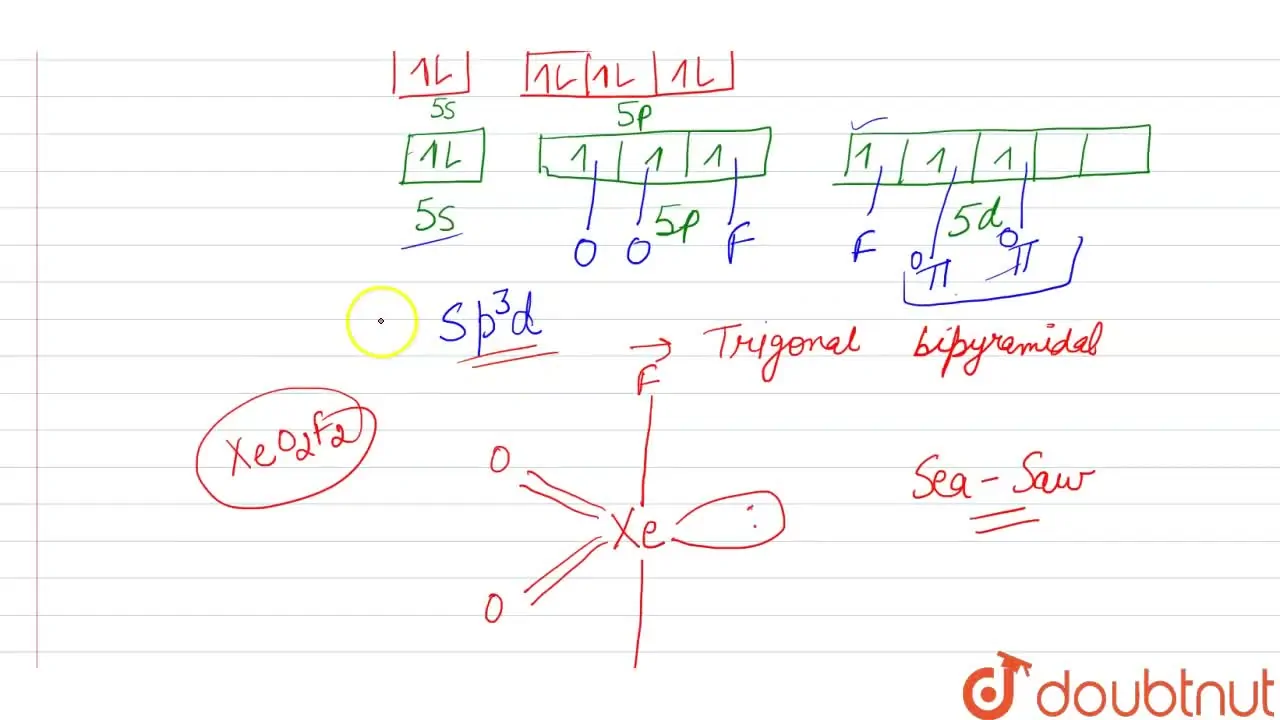 1L 1L 1L 1L
5s 5p
1L 1 1 1 1 1 1
5s 5p 5d
O O F F O π O π
Sp³d → Trigonal bipyramidal
F
XeO₂F₂
O
Sea-Saw
Xe :
O
doubtnut